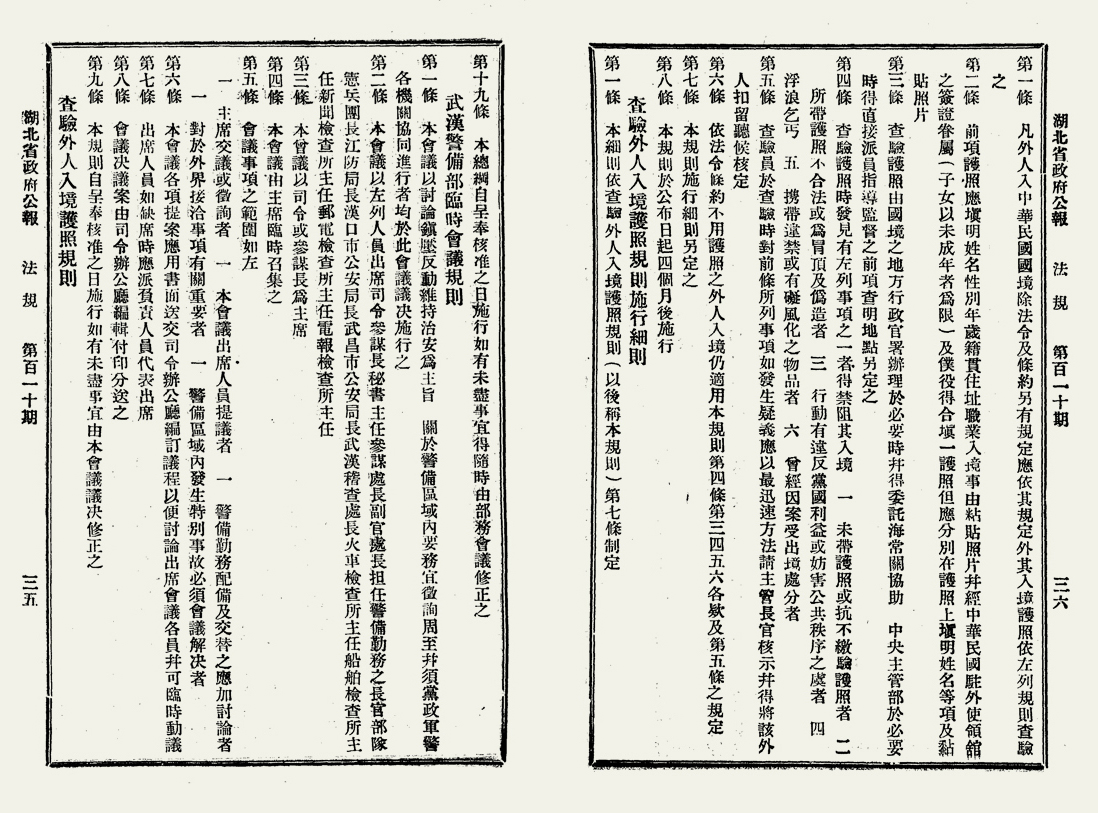 第十九條　本總綱自呈奉核准之日施行如有未盡事宜得隨時由部務會議修正之
武漢警備部臨時會議規則
第一條　本會議以討論鎭壓反動維持治安爲主旨　關於警備區域內要務宜徵詢周至幷須黨政軍警
各機關協同進行者均於此會議議决施行之
第二條　本會議以左列人員出席司令參謀長秘書主任參謀處長副官處長担任警備勤務之長官部隊
憲兵團長江防局長漢口市公安局長武昌市公安局長武漢稽查處長火車檢查所主任船舶檢查所主
任新聞檢查所主任郵電檢查所主任電報檢查所主任
第三條　本會議以司令或參謀長爲主席
第四條　本會議由主席臨時召集之
第五條　會議事項之範圍如左
一　主席交議或徵詢者　一　本會議出席人員提議者　一　警備勤務配備及交替之應加討論者
一　對於外界接洽事項有關重要者　一　警備區域內發生特別事故必須會議解决者
第六條　本會議各項提案應用書面送交司令辦公廳編訂議程以便討論出席會議各員幷可臨時動議
第七條　出席人員如缺席時應派負責人員代表出席
第八條　會議决議案由司令辦公廳編輯付印分送之
第九條　本規則自呈奉核准之日施行如有未盡事宜由本會議議决修正之
查驗外人入境護照規則
湖北省政府公報　法規　第百一十期　三五
湖北省政府公報　法規　第百一十期　三六
第一條　凡外人入中華民國國境除法令及條約另有規定應依其規定外其入境護照依左列規則查驗
之
第二條　前項護照應塡明姓名性別年歲籍貫住址職業入境事由粘貼照片幷經中華民國駐外使領館
之簽證眷屬（子女以未成年者爲限）及僕役得合塡一護照但應分別在護照上塡明姓名等項及黏
貼照片
第三條　查驗護照由國境之地方行政官署辦理於必要時幷得委託海常關協助　中央主管部於必要
時得直接派員指導監督之前項查明地點另定之
第四條　查驗護照時發見有左列事項之一者得禁阻其入境　一　未帶護照或抗不繳驗護照者　二
所帶護照不合法或爲冒頂及僞造者　三　行動有違反黨國利益或妨害公共秩序之虞者　四
浮浪乞丐　五　携帶違禁或有礙風化之物品者　六　曾經因案受出境處分者
第五條　查驗員於查驗時對前條所列事項如發生疑義應以最迅速方法請主管長官核示幷得將該外
人扣留聽候核定
第六條　依法令條約不用護照之外人入境仍適用本規則第四條第三四五六各欵及第五條之規定
第七條　本規則施行細則另定之
第八條　本規則於公布日起四個月後施行
查驗外人入境護照規則施行細則
第一條　本細則依查驗外人入境護照規則（以後稱本規則）第七條制定